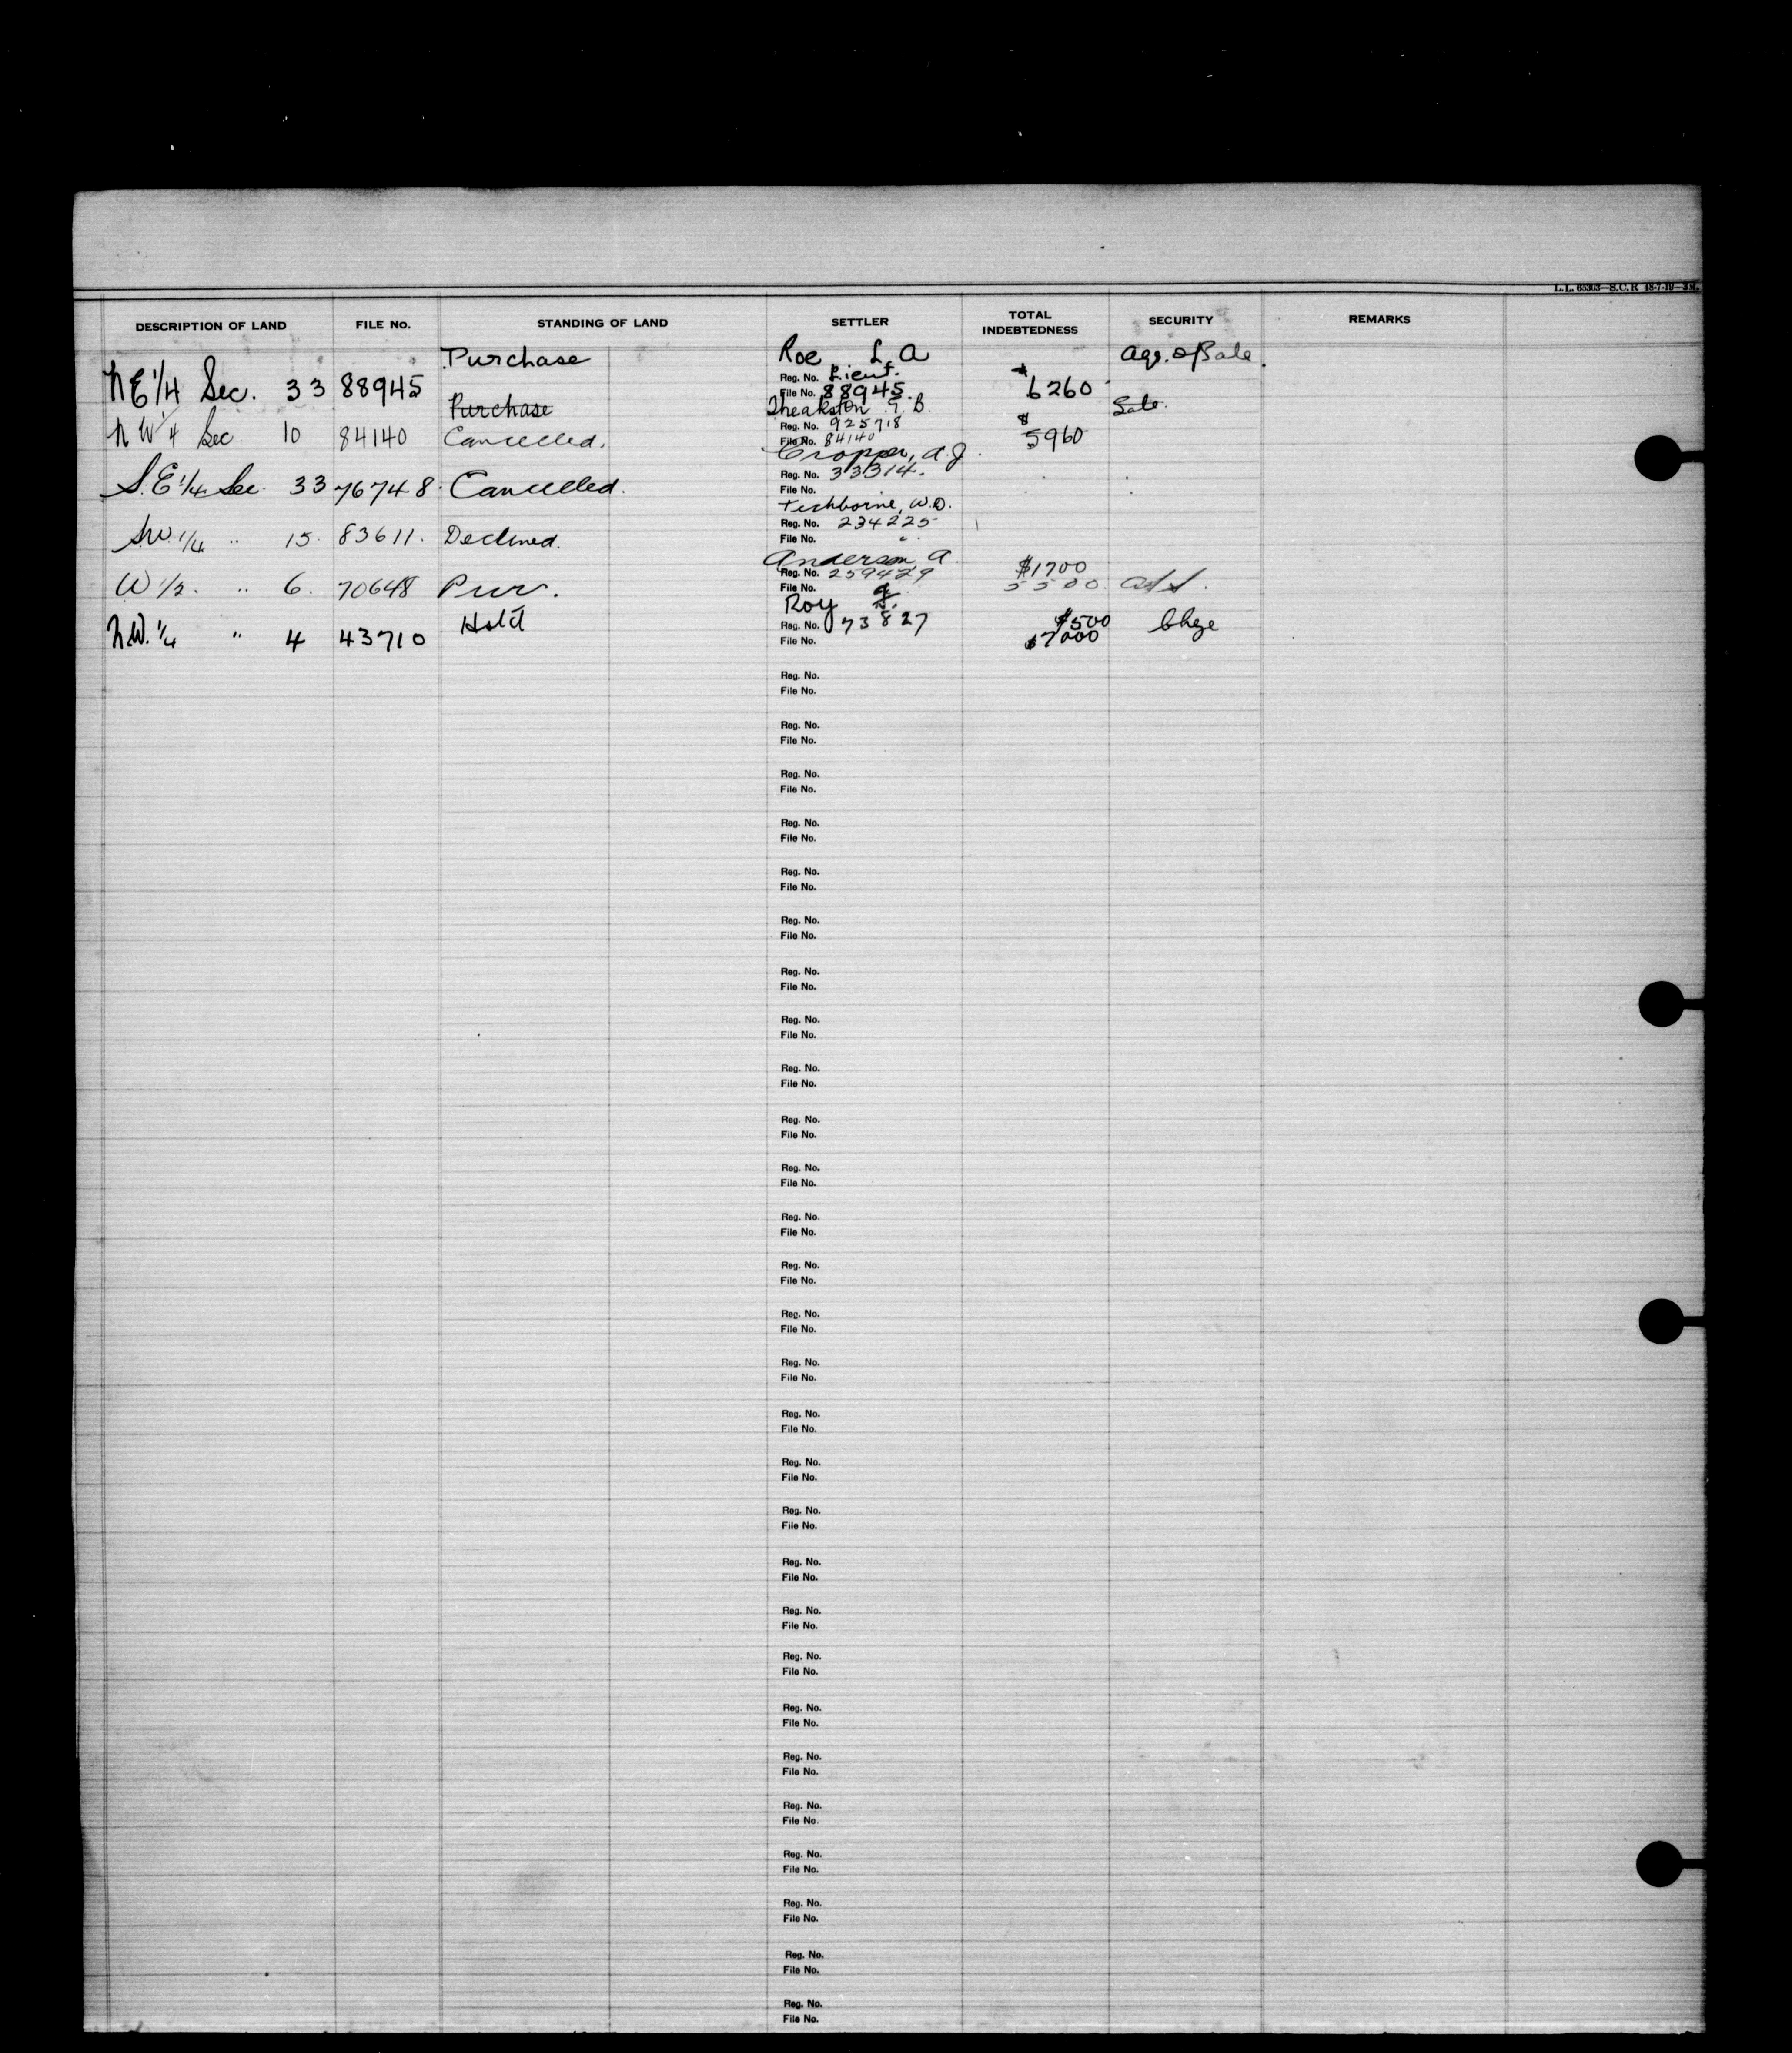 L.L. 65303—S.C.R. 48-7-19—3M.
DESCRIPTION OF LAND FILE No. STANDING OF LAND SETTLER TOTAL INDEBTEDNESS SECURITY REMARKS
Purchase Roe L.A Agr. of Sale.
Reg. No. Lieut.
NE 1/4 Sec. 33 88945 File No. 88945. $6260
Purchase Theakston G.B. Sale.
Reg. No. 925718
NW 1/4 Sec 10 84140 Cancelled. File No. 84140 $5960
Cropper, A.J.
Reg. No. 33314.
S.E 1/4 Sec. 33 76748. Cancelled. File No.
Tichborne, W.D.
Reg. No. 234225
S.W. 1/4 " 15. 83611. Declined. File No.
Anderson A. $1700
Reg. No. 259429
W 1/2. " 6. 70648 Pur. File No. 5500
Roy J.
Hold Reg. No. 73827 $500 Chge
N.W. 1/4 " 4 43710 File No. $7000
Reg. No.
File No.
Reg. No.
File No.
Reg. No.
File No.
Reg. No.
File No.
Reg. No.
File No.
Reg. No.
File No.
Reg. No.
File No.
Reg. No.
File No.
Reg. No.
File No.
Reg. No.
File No.
Reg. No.
File No.
Reg. No.
File No.
Reg. No.
File No.
Reg. No.
File No.
Reg. No.
File No.
Reg. No.
File No.
Reg. No.
File No.
Reg. No.
File No.
Reg. No.
File No.
Reg. No.
File No.
Reg. No.
File No.
Reg. No.
File No.
Reg. No.
File No.
Reg. No.
File No.
Reg. No.
File No.
Reg. No.
File No.
Reg. No.
File No.
Reg. No.
File No.